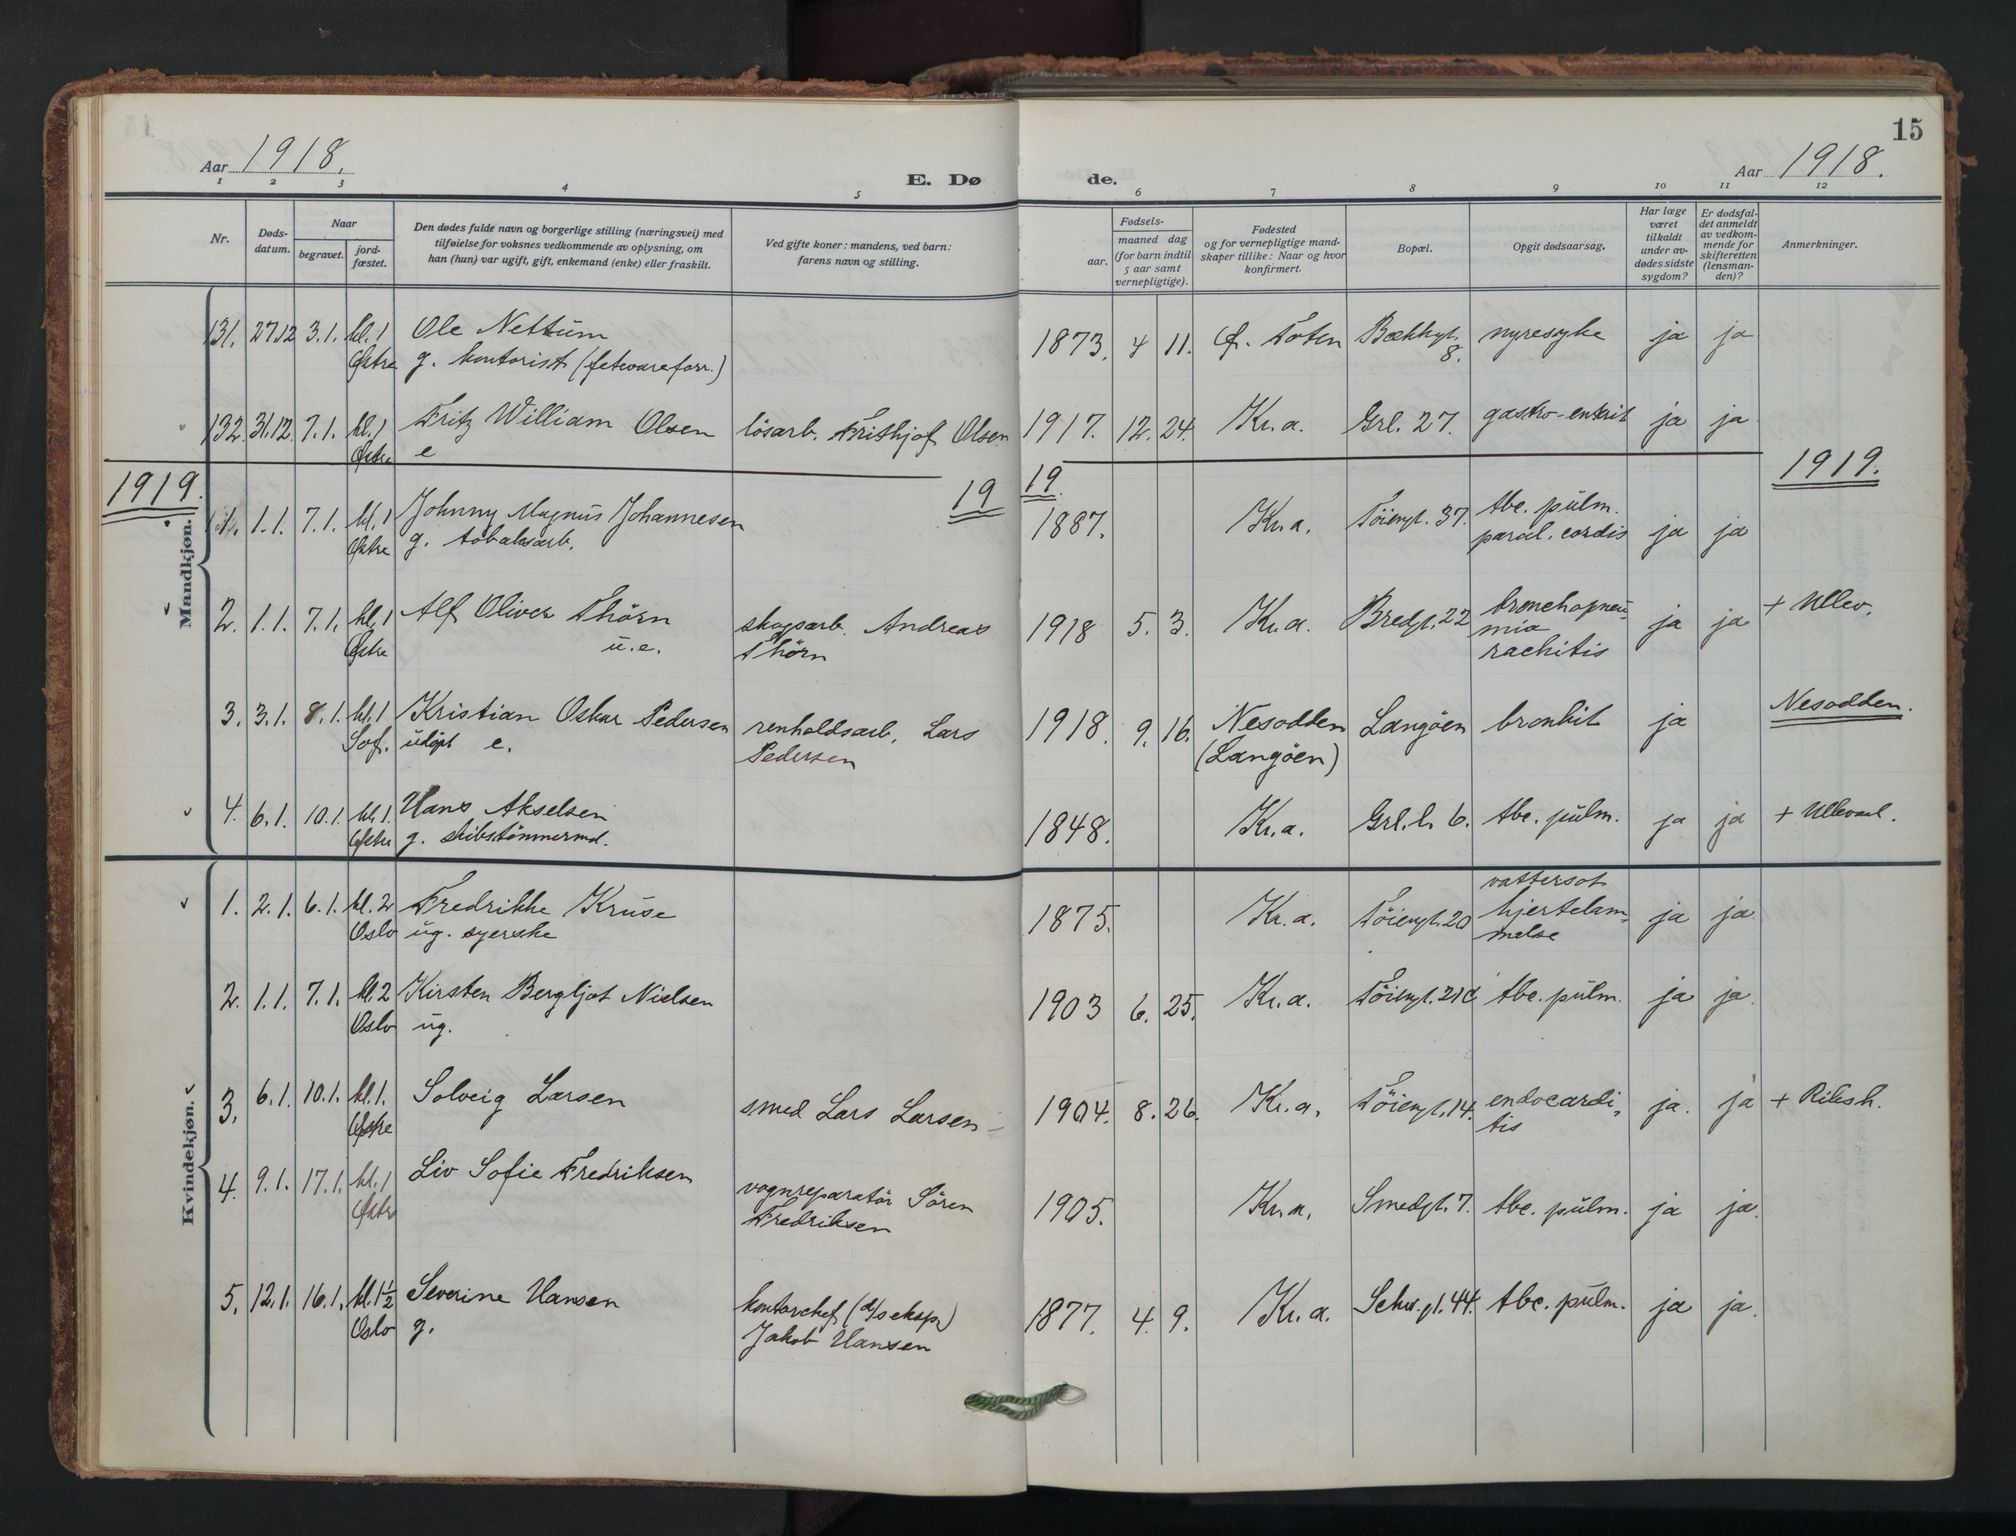 15
Aar 1918. E. Døde. Aar 1918.
1 2 3 4 5 6 7 8 9 10 11 12
Nr.
Døds-
datum.
Naar
begravet.
jord-
fæstet.
Den dødes fulde navn og borgerlige stilling (næringsvei) med
tilføielse for voksnes vedkommende av oplysning, om
han (hun) var ugift, gift, enkemand (enke) eller fraskilt.
Ved gifte koner: mandens, ved barn:
farens navn og stilling.
Fødsels-
aar.
maaned dag
(for barn indtil
5 aar samt
vernepligtige).
Fødested
og for vernepligtige mand-
skaper tillike: Naar og hvor
konfirmert.
Bopæl.
Opgit dødsaarsag.
Har læge
været
tilkaldt
under av-
dødes sidste
sygdom?
Er dødsfal-
det anmeldt
av vedkom-
mende for
skifteretten
(lensman-
den)?
Anmerkninger.
131. 27.12 3.1. kl. 1 Ole Nettum 1873. 4 11. Ø. Toten Bækkgt. nyresyke ja ja
Østre g. kontorist (fetvareforr.) 8.
132. 31.12. 7.1. kl. 1 Fritz William Olsen løsarb. Frithjof Olsen 1917. 12. 24. Kr.a. Grl. 27. gastro-enterit ja ja
Østre e
1919. 19 19 1919.
Mandkjøn.
1. 1.1. 7.1. kl. 1 Johnny Magnus Johannesen 1887. Kr.a. Töiengt. 37. tbc. pulm. ja ja
Østre g. tobaksarb. paral. cordis
2. 1.1. 7.1. kl. 1 Alf Oliver Thørn skogsarb. Andreas 1918 5. 3. Kr.a. Bredgt. 22 bronchopneu- ja ja + Ullev.
Østre u.e. Thørn mia
rachitis
3. 3.1. 8.1. kl. 1 Kristian Oskar Pedersen renholdsarb. Lars 1918. 9. 16. Nesodden Langøen bronkit ja Nesodden.
Sof. udøpt e. Pedersen (Langøen)
4. 6.1. 10.1. kl. 1. Hans Akselsen 1848. Kr.a. Grl.l. 6. tbc. pulm. ja ja + Ullevaal.
Østre g. skibstømmermd.
Kvindekjøn.
1. 2.1. 6.1. kl. 2 Fredrikke Kruse 1875. Kr.a. Töiengt. 20 vattersot ja ja
Oslo ug. syerske hjertelam-
melse
2. 1.1. 7.1. kl. 2 Kirsten Bergljot Nielsen 1903 6. 25. Kr.a. Töiengt. 21c tbc. pulm. ja ja
Oslo ug.
3. 6.1. 10.1. kl. 1. Solveig Larsen smed Lars Larsen 1904. 8. 26. Kr.a. Töiengt. 14. endocardi- ja. ja + Riksh.
Østre tis
4. 9.1. 17.1. kl. 1 Liv Sofie Fredriksen vognreparatør Sören 1905. Kr.a. Smedgt. 7. tbc. pulm. ja ja.
Østre Fredriksen
5. 12.1. 16.1. kl. 1½ Severine Hansen kontorchef (d/s eksp.) 1877. 4. 9. Kr.a. Schw.gt. 44. tbc. pulm. ja ja.
Oslo g. Jakob Hansen